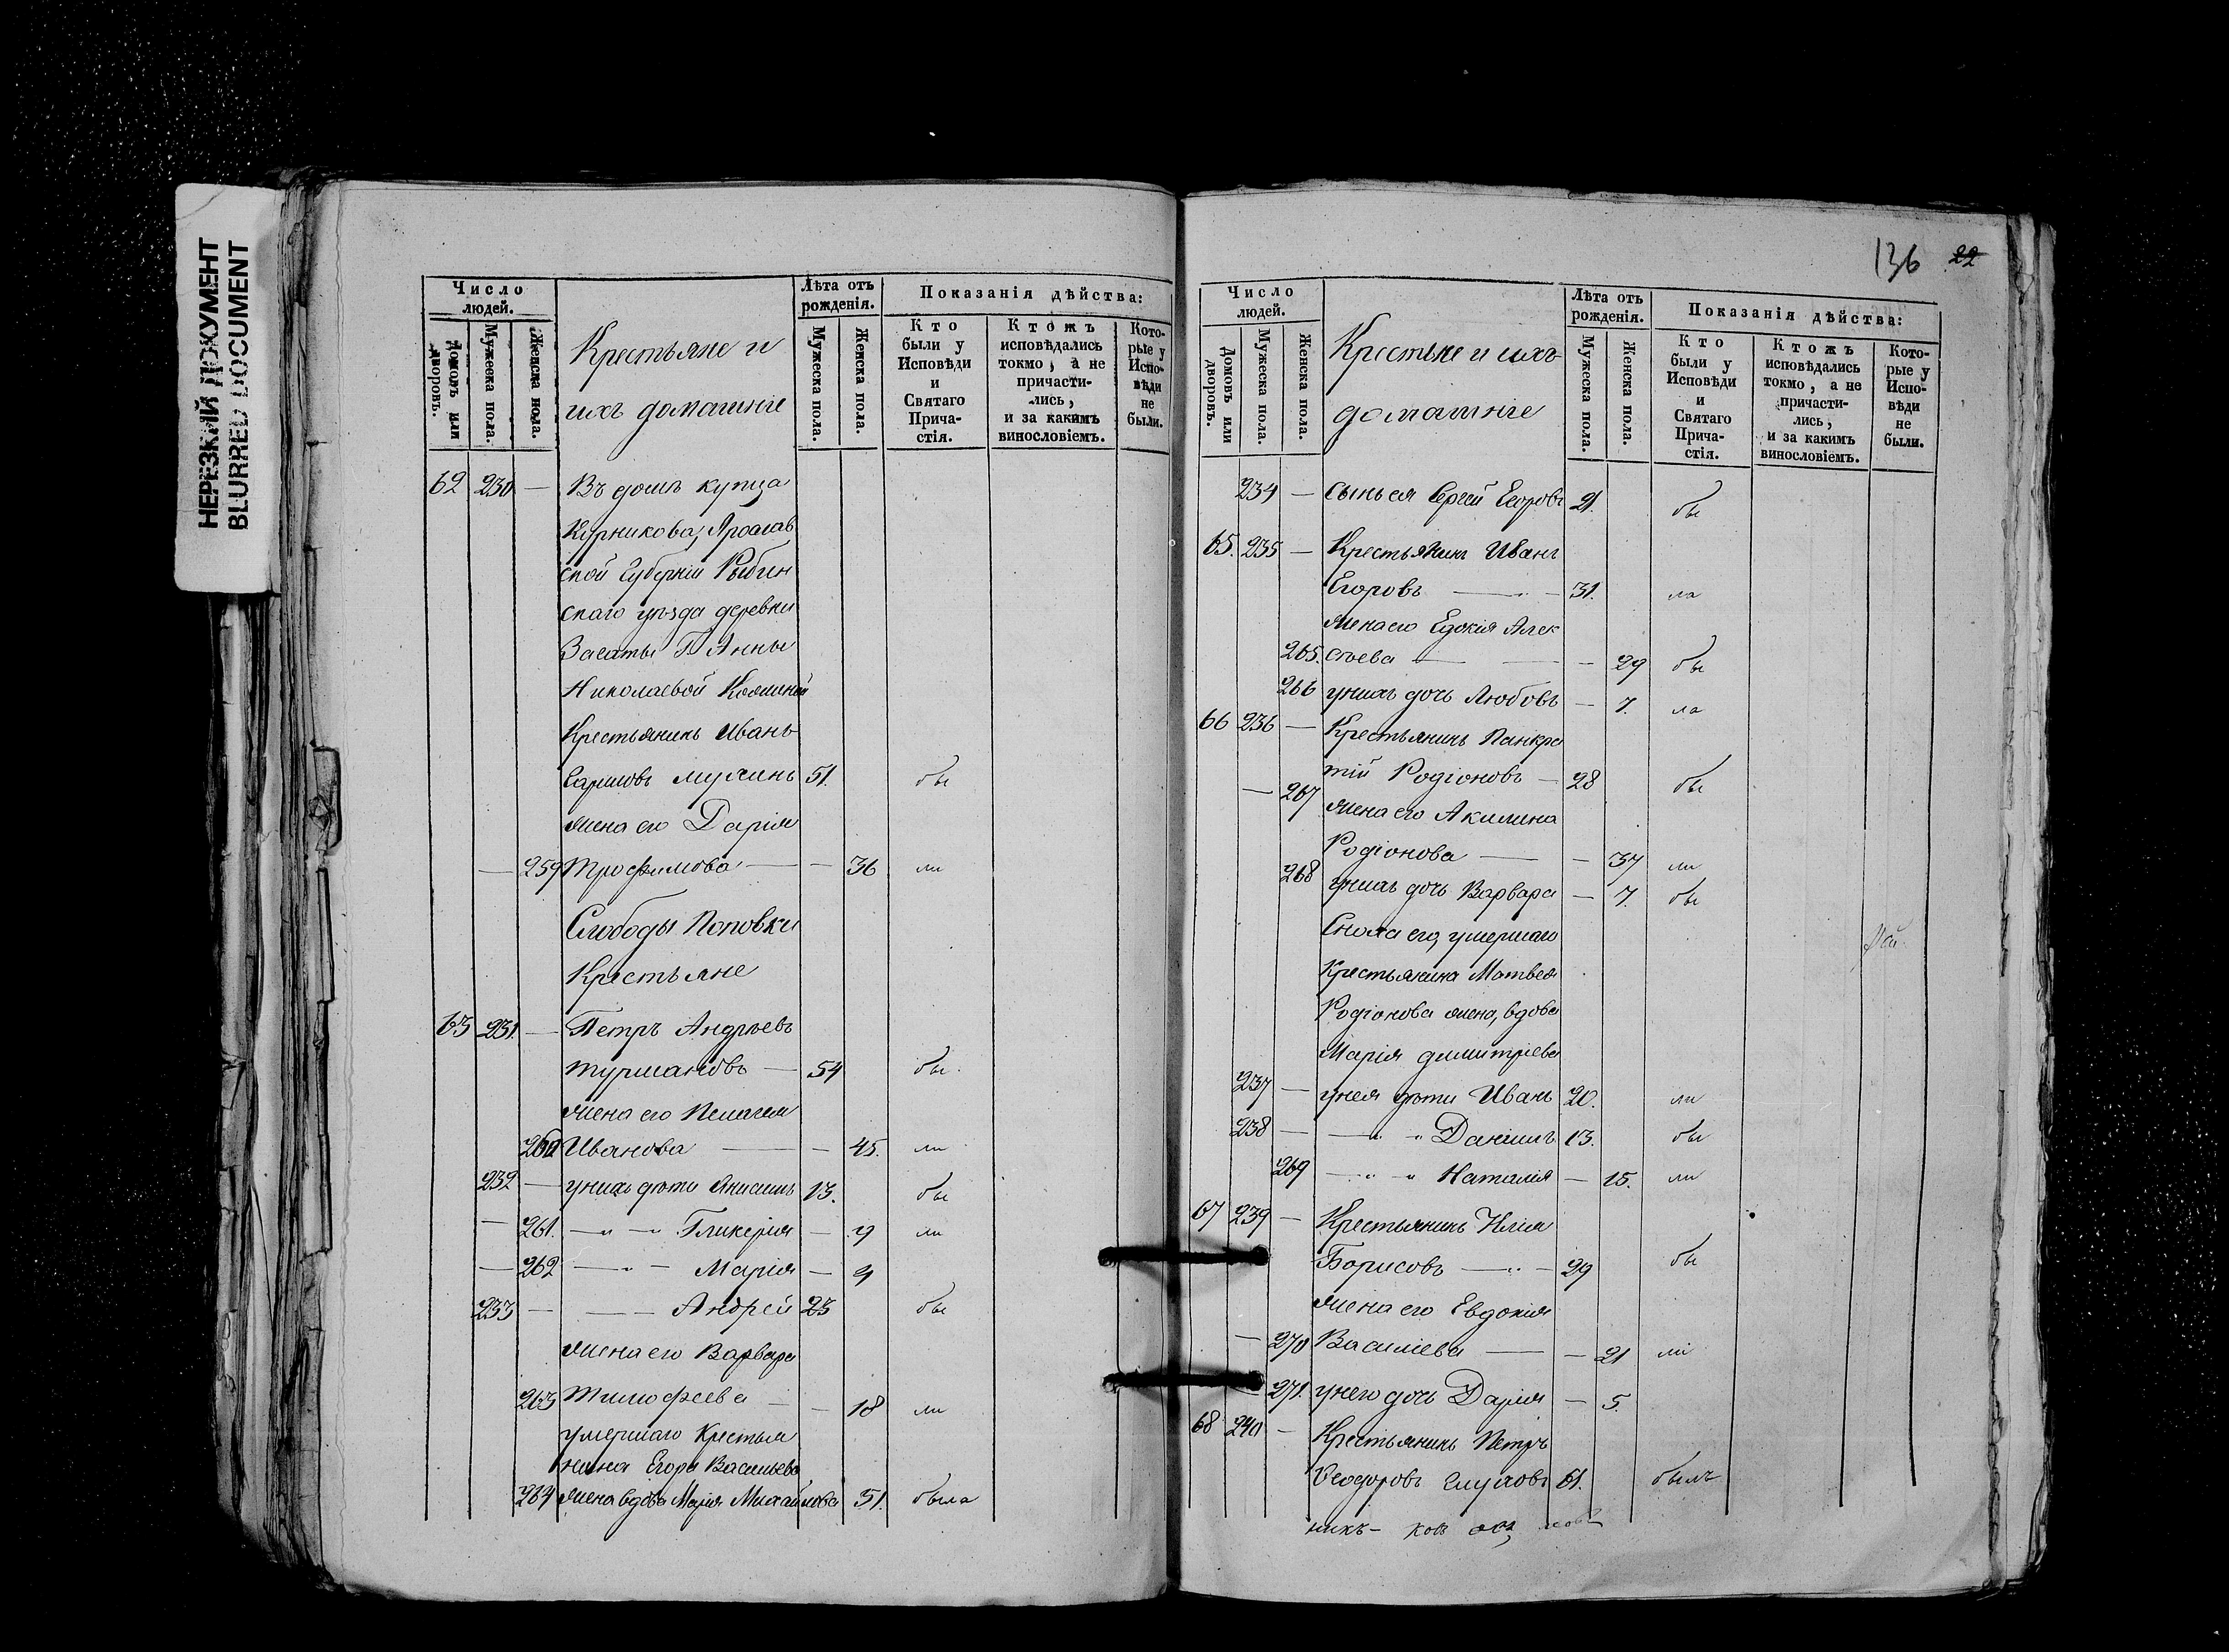 НЕРЕЗКИЙ ДОКУМЕНТ
BLURRED DOCUMENT
Число людей.
Домовъ или дворовъ.
Мужеска пола.
Женска пола.
Крестьяне и
ихъ домашніе
Лѣта отъ рожденія.
Мужеска пола.
Женска пола.
Показанія дѣйства:
Кто были у Исповѣди и Святаго Причастія.
Ктожъ исповѣдались токмо, а не причастились, и за какимъ винословіемъ.
Которые у Исповѣди не были.
62 230 — Въ домѣ купца
Курникова, Ярослав
ской Губерніи Рыбин
скаго уѣзда деревни
Г. Анны
Николаевой
Крестьянинъ Иванъ
51. бы
жена его Дарія
— 259 Трофимова — — 36 ли
Слободы Поповки
Крестьяне
63 231. — Петръ Андреевъ
Турмановъ — 54 бы
жена его Пелагея
260 Иванова — — 45. ли
232 — у нихъ дѣти Анисимъ 13. бы
— 261. —„ —„ Гликерія — 9 ли
— 262 —„ — Марія — 4
233 — — — Андрей 23 бы
жена его Варвара
263 Тимофеева — — 18 ли
умершаго Крестья
нина Егора Васильева
264 жена вдова Марія Михайлова 51. была
136 22
Число людей.
Домовъ или дворовъ.
Мужеска пола.
Женска пола.
Крестьне и ихъ
домашніе
Лѣта отъ рожденія.
Мужеска пола.
Женска пола.
Показанія дѣйства:
Кто были у Исповѣди и Святаго Причастія.
Ктожъ исповѣдались токмо, а не причастились, и за какимъ винословіемъ.
Которые у Исповѣди не были.
234 — сынъ ея Сергій Егоровъ 21. бы
65. 235 — Крестьянинъ Иванъ
Егоровъ — „ — 31. ла
жена его Едокія Алек
265. сѣева — — — 29 бы
266 у нихъ дочь Любовь — 7. ла
66 236 — Крестьянинъ Панкра
тій Родіоновъ — 28 бы
— 267 жена его Акилина
Родіонова — — 37 ли
268 у нихъ дочь Варвара — 7. бы
Сноха его, умершаго
Крестьянина Матвея
Родіонова жена, вдова
Марія Димитріева
237 — у нея дѣти Иванъ 20. ли
238 — —„ „ Даніилъ 13. бы
269 —„ „ Наталія — 15. ли
67 239 — Крестьянинъ Илія
Борисовъ —„— 29 бы
жена его Евдокія
— 270 Василіева — — 21 ли
271. у него дочь Дарія — 5.
68 240 — Крестьянинъ Петръ
Ѳеодоровъ Глуховъ 61. былъ